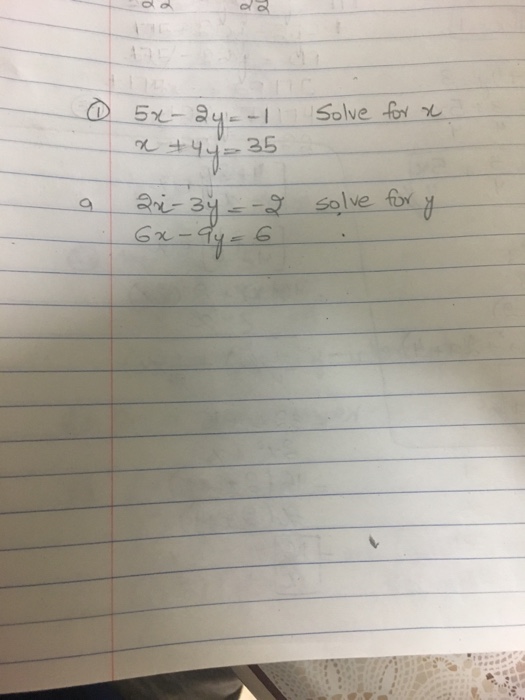 22 22
① 5x - 2y = -1 Solve for x
x + 4y = 35
9 2x - 3y = -2 solve for y
6x - 9y = 6